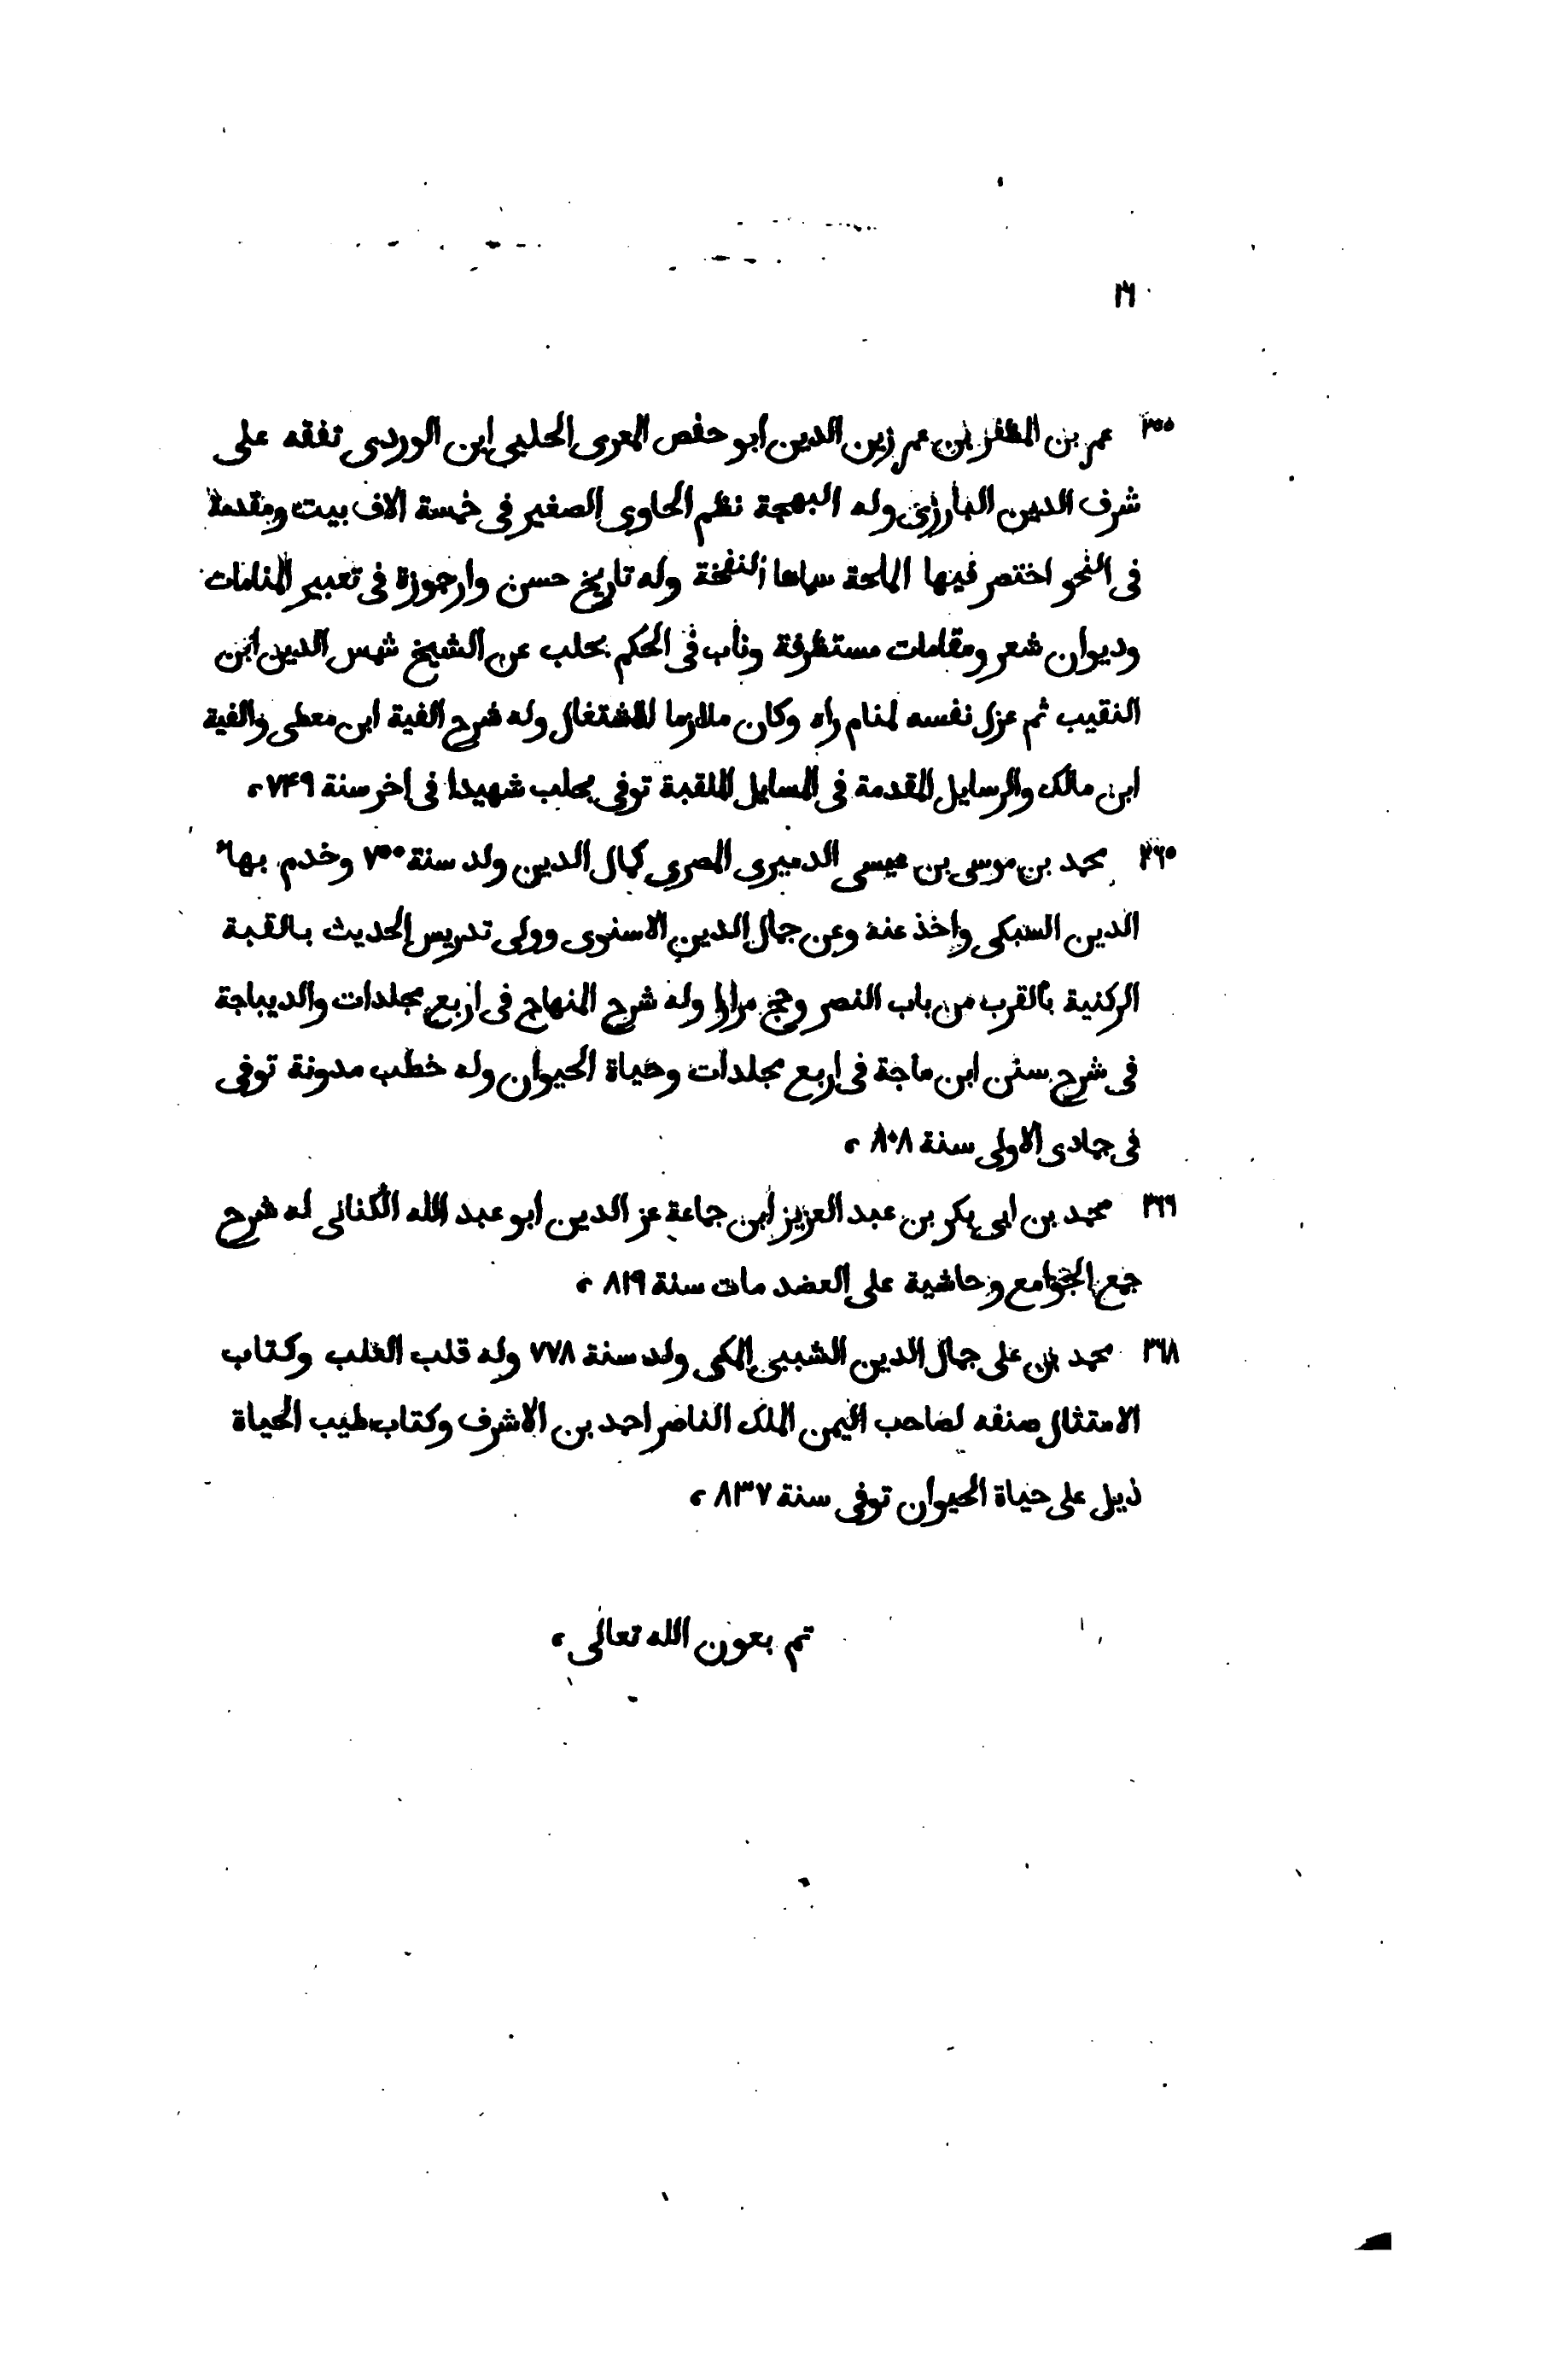 ٣٦
٣٥٥ عمر بن المظفر بن عمر زين الدين ابو حفص المعرى الحلبى ابن الوردى تفقه على
شرف الدين البارزى وله البهجة نظم الحاوى الصغير فى خمسة الاف بيت ومقدمة
فى النحو اختصر فيها الملحة سماها النفخة وله تاريخ حسن وارجوزة فى تعبير المنامات
وديوان شعر ومقامات مستظرفة وناب فى الحكم بحلب عن الشيخ شمس الدين ابن
النقيب ثم عزل نفسه لمنام راه وكان ملازما للاشتغال وله شرح الفية ابن معطى والفية
ابن مالك والرسايل المقدمة فى المسايل الملقبة توفى بحلب شهيدا فى اخر سنة ٧۴٩ ،
٣٦٥ محمد بن موسى بن عيسى الدميرى المصرى كمال الدين ولد سنة ٧٥٥ وخدم بهاء
الدين السبكى واخذ عنه وعن جمال الدين الاسنوى وولى تدريس الحديث بالقبة
الركنية بالقرب من باب النصر وحج مرارا وله شرح المنهاج فى اربع مجلدات والديباجة
فى شرح سنن ابن ماجة فى اربع مجلدات وحياة الحيوان وله خطب مدونة توفى
فى جمادى الاولى سنة ٨٠٨ ،
٣٦٦ محمد بن ابى بكر بن عبد العزيز ابن جماعة عز الدين ابو عبد الله الكنانى له شرح
جمع الجوامع وحاشية على العضد مات سنة ٨١٩ ،
٣٦٨ محمد بن على جمال الدين الشيبى المكى ولد سنة ٧٧٨ وله قلب القلب وكتاب
الامتثال صنفه لصاحب اليمن الملك الناصر احمد بن الاشرف وكتاب طيب الحياة
ذيل على حياة الحيوان توفى سنة ٨٣٧ ،
تم بعون الله تعالى ،